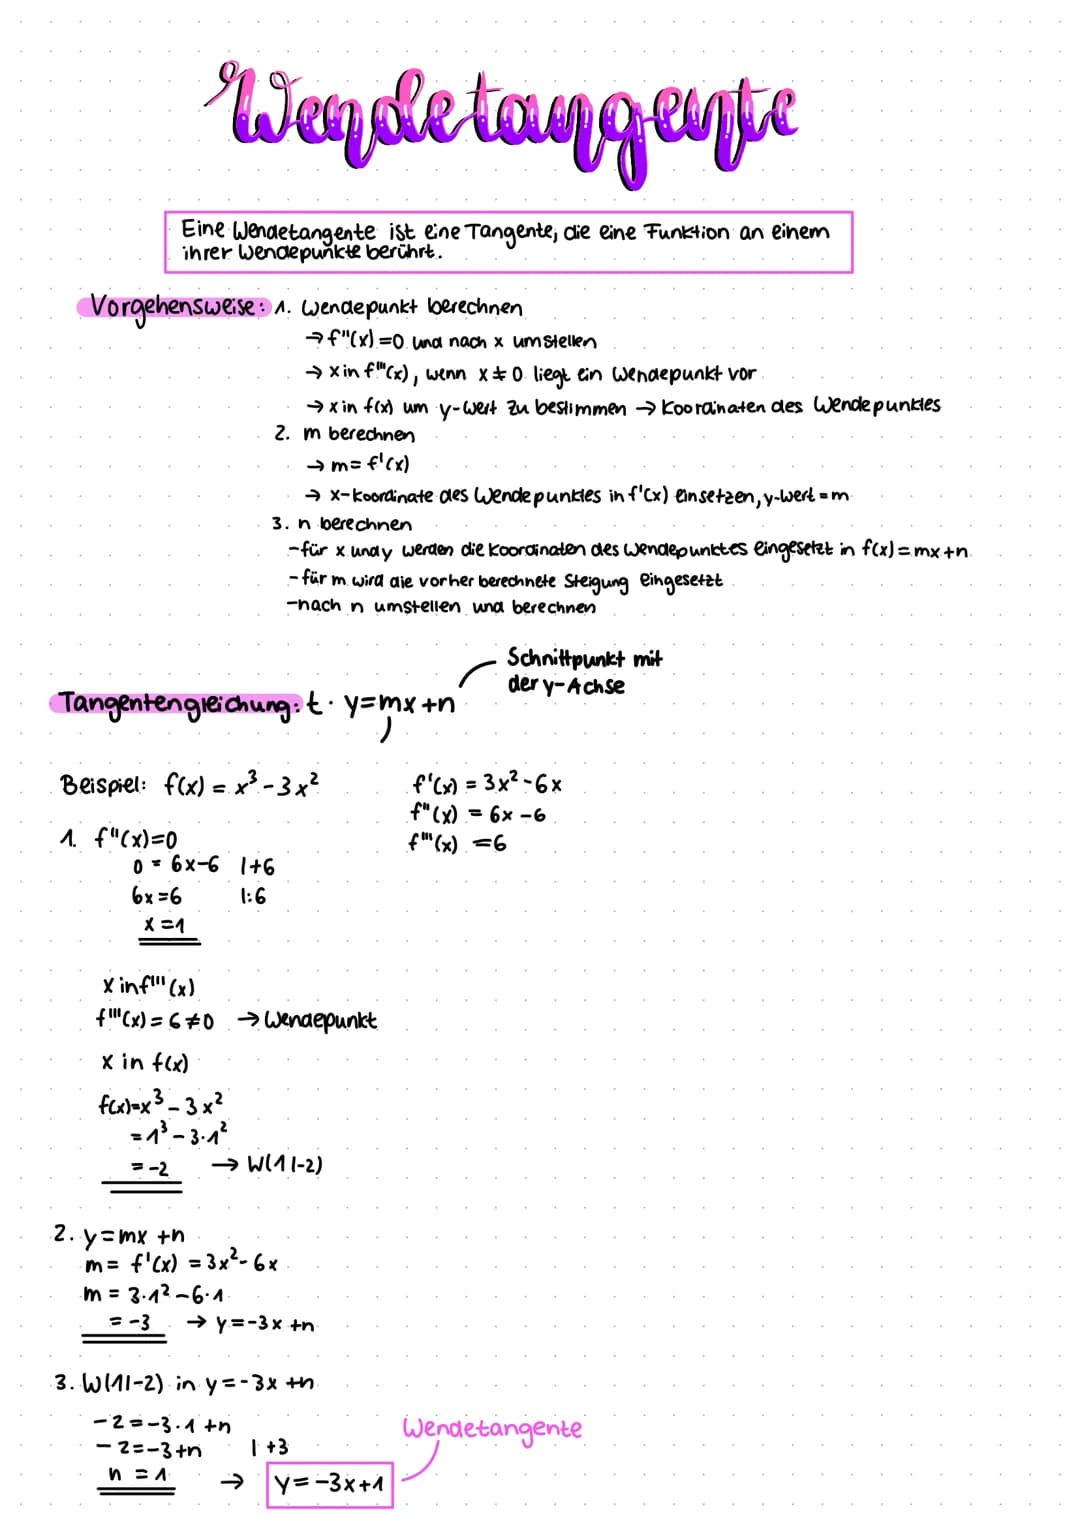 Wendetangente
Eine Wendetangente ist eine Tangente, die eine Funktion an einem
ihrer Wendepunkte berührt.
Vorgehensweise: 1. Wendepunkt berechnen
→ f"(x)=0 und nach x umstellen
→ x in f'''(x), wenn x ≠ 0 liegt ein Wendepunkt vor
→ x in f(x) um y-Wert zu bestimmen → Koordinaten des Wendepunktes
2. m berechnen
→ m= f'(x)
→ x-Koordinate des Wendepunktes in f'(x) einsetzen, y-Wert = m
3. n berechnen
-für x und y werden die Koordinaten des Wendepunktes eingesetzt in f(x)=mx+n
-für m wird die vorher berechnete Steigung eingesetzt
-nach n umstellen und berechnen
Schnittpunkt mit
der y-Achse
Tangentengleichung: t: y=mx+n
Beispiel: f(x) = x³-3x²
f'(x) = 3x²-6x
f"(x) = 6x-6
f'''(x) =6
1. f"(x)=0
0 = 6x-6 |+6
6x=6 |:6
x=1
x in f'''(x)
f'''(x)=6≠0 → Wendepunkt
x in f(x)
f(x)=x³-3x²
=1³-3·1²
=-2 → W(1|-2)
2. y=mx+n
m= f'(x) =3x²-6x
m = 3·1²-6·1
=-3 → y=-3x+n
3. W(1|-2) in y=-3x+n
-2=-3·1+n
-2=-3+n |+3
n = 1 → y=-3x+1
Wendetangente